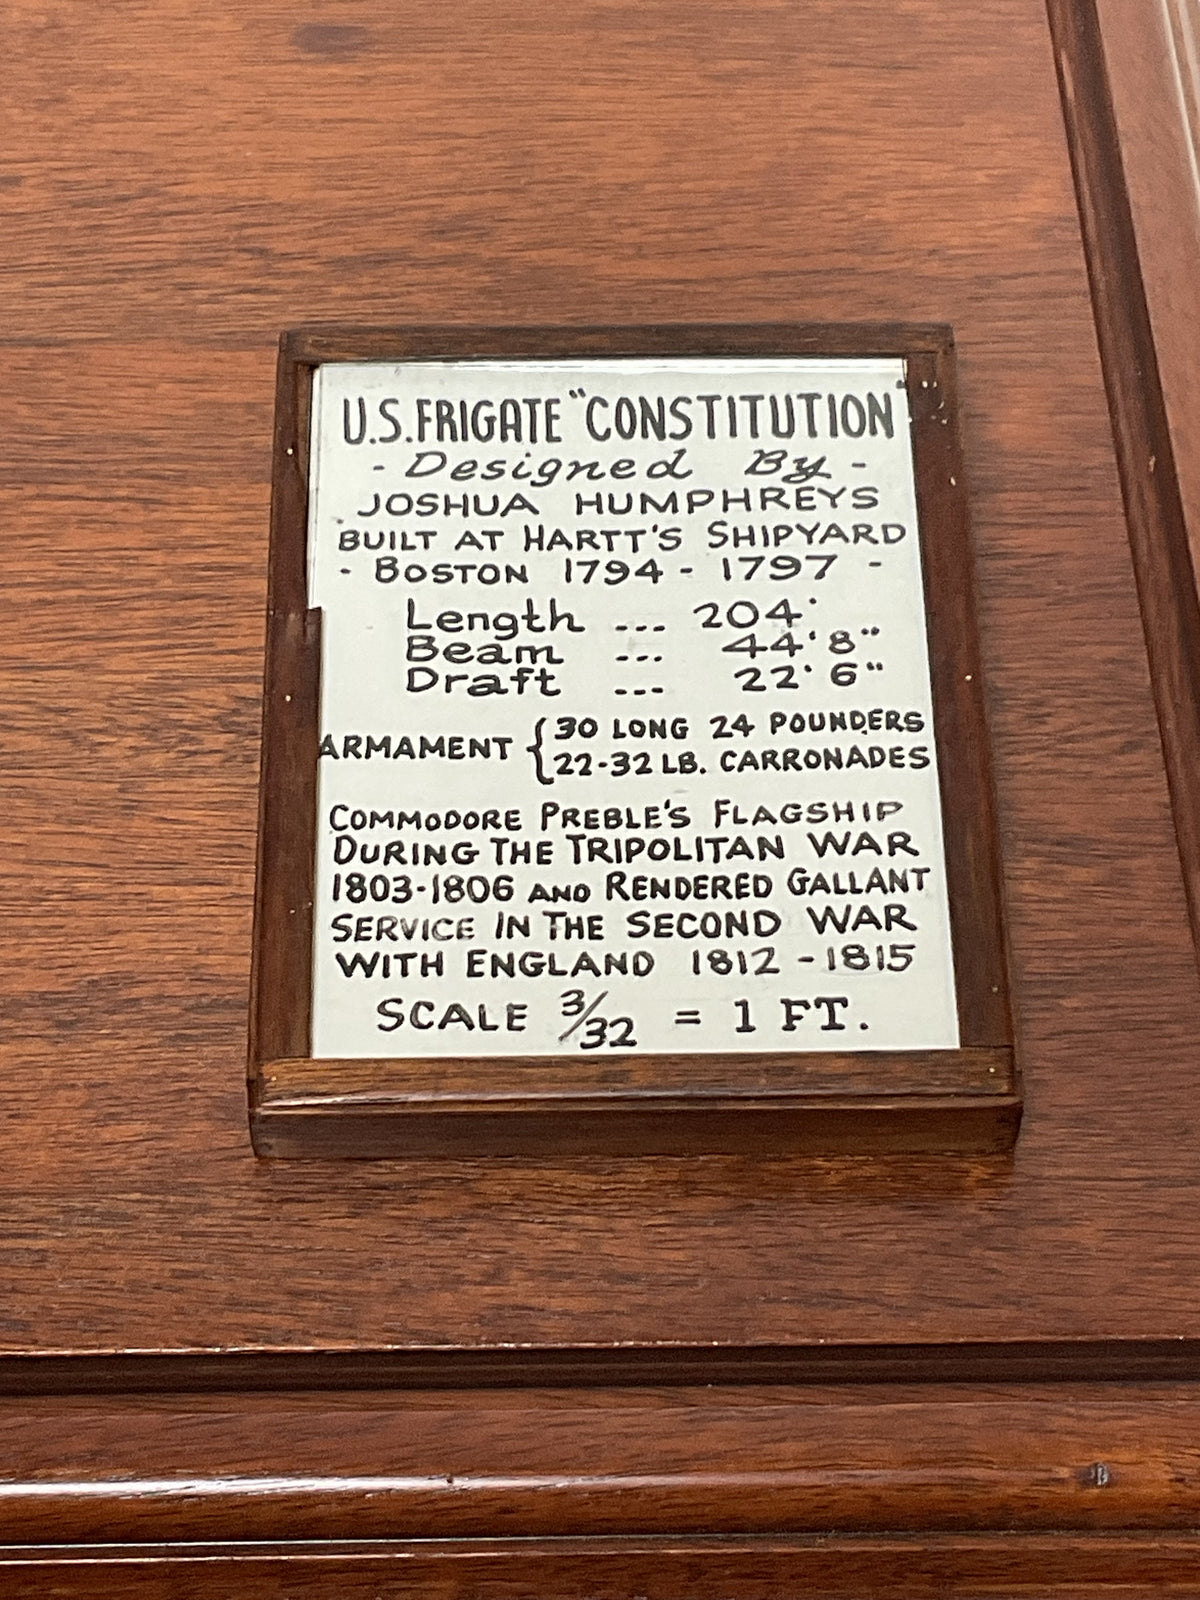 U.S. FRIGATE "CONSTITUTION"
- Designed By -
JOSHUA HUMPHREYS
BUILT AT HARTT'S SHIPYARD
- BOSTON 1794 - 1797 -
Length ... 204'
Beam ... 44' 8"
Draft ... 22' 6"
ARMAMENT { 30 LONG 24 POUNDERS
22-32 LB. CARRONADES
COMMODORE PREBLE'S FLAGSHIP
DURING THE TRIPOLITAN WAR
1803-1806 AND RENDERED GALLANT
SERVICE IN THE SECOND WAR
WITH ENGLAND 1812 - 1815
SCALE 3/32 = 1 FT.